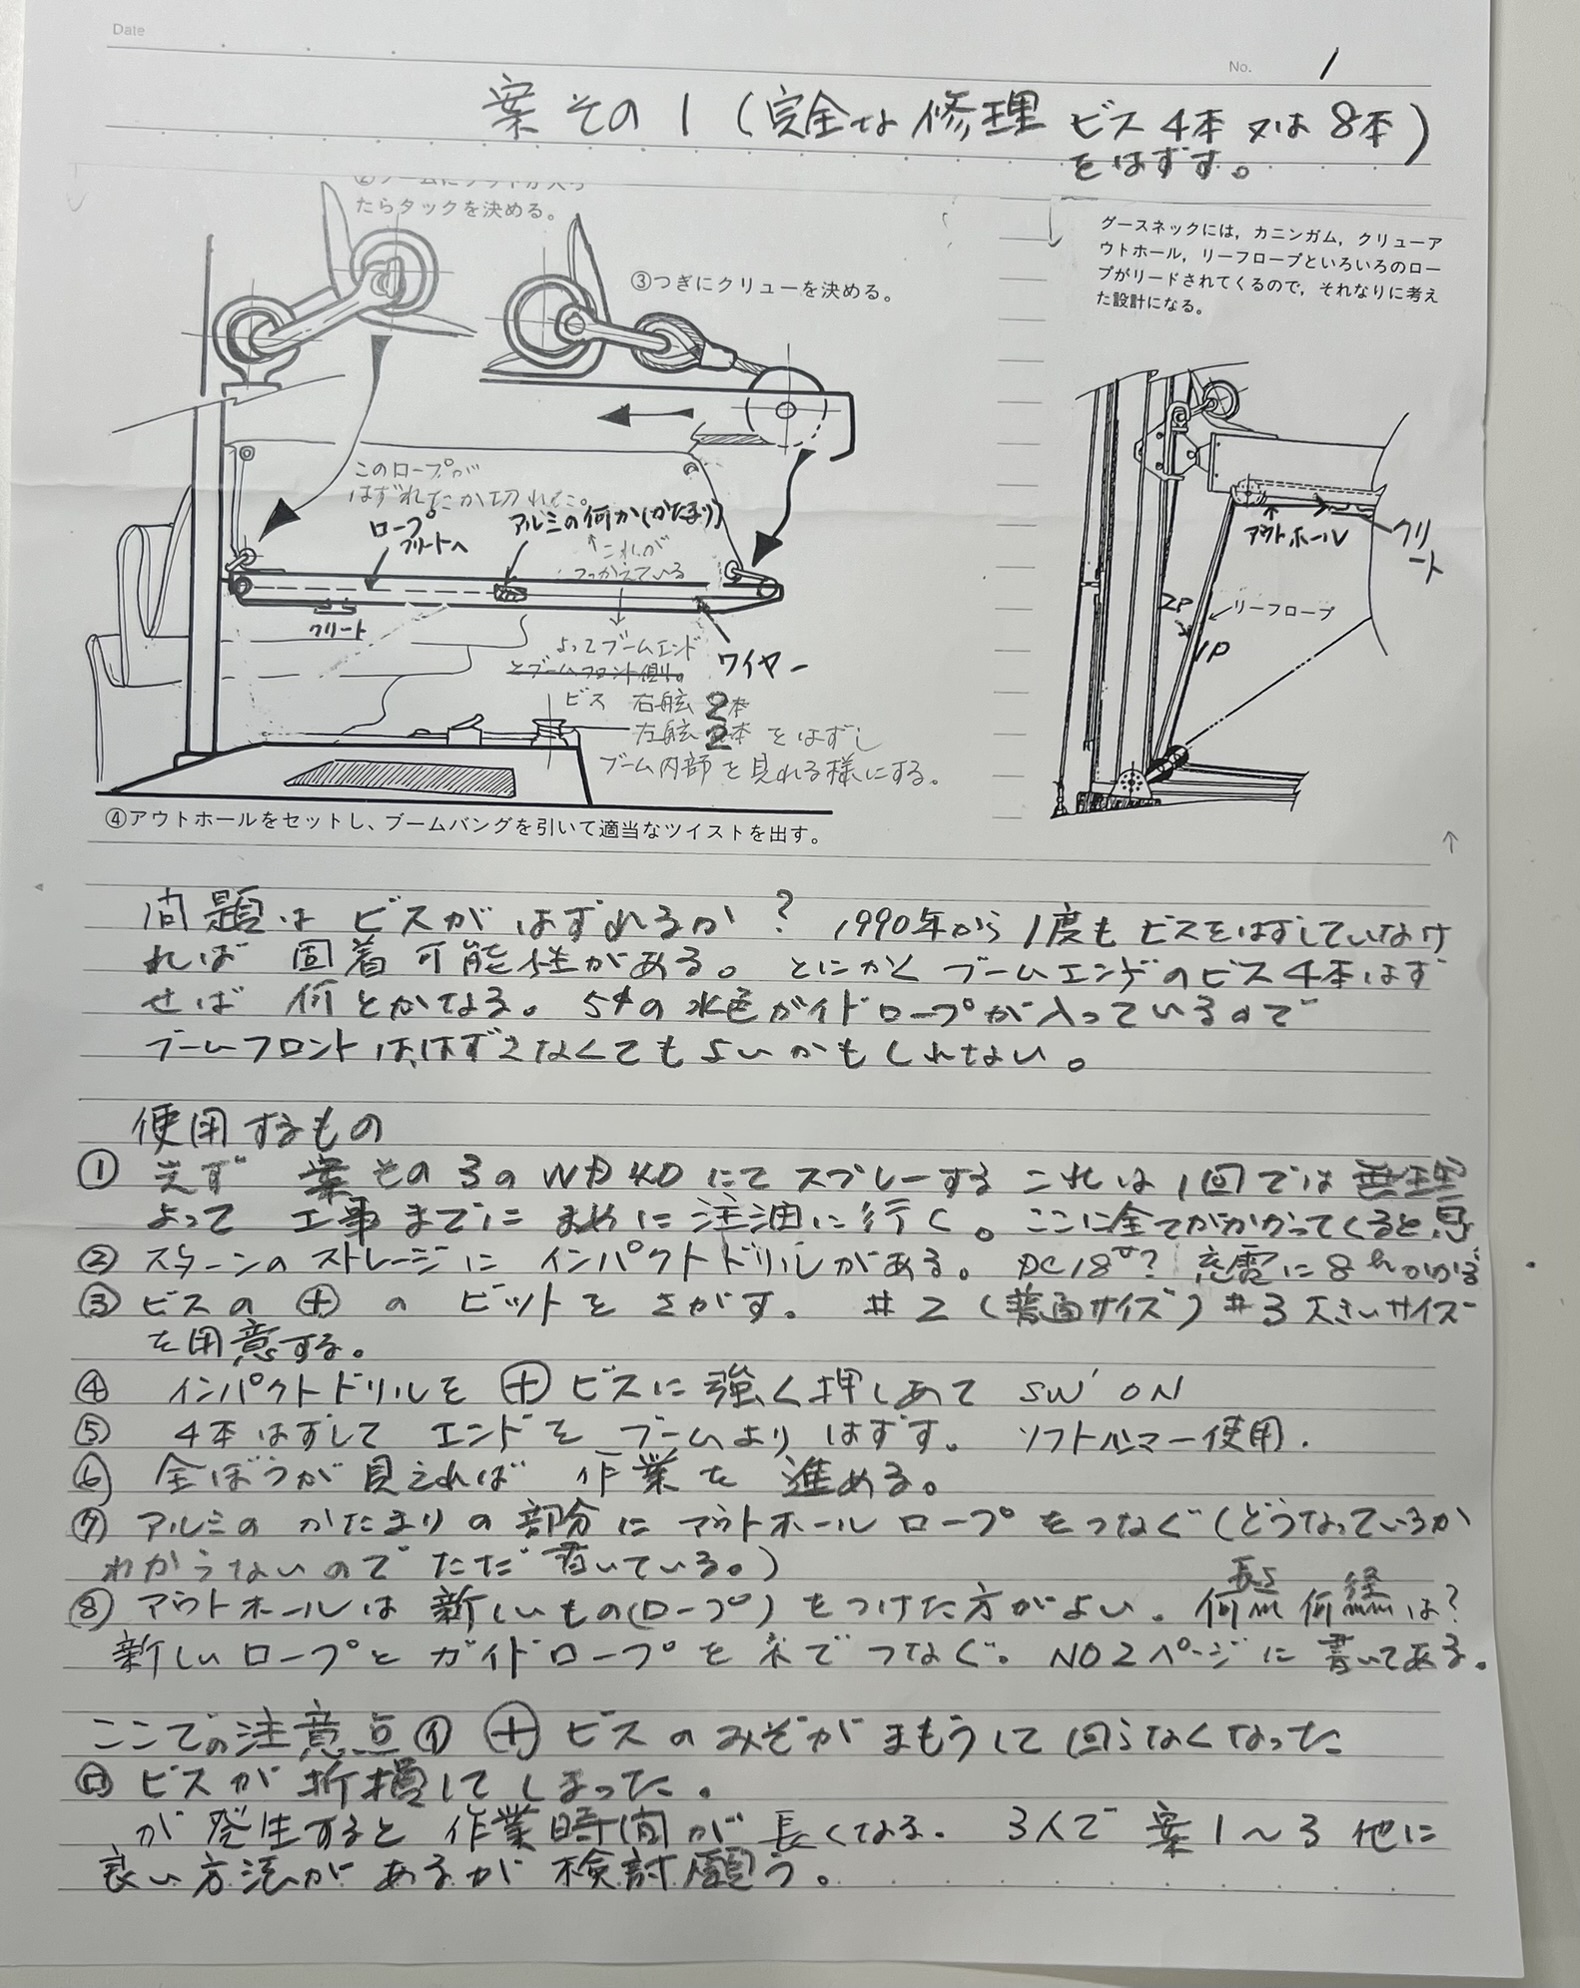 Date
No. 1
案その1(完全な修理 ビス4本又は8本)
をはずす。
たらタックを決める。
③つぎにクリューを決める。
グースネックには,カニンガム,クリューア
ウトホール,リーフロープといろいろのロー
プがリードされてくるので,それなりに考え
た設計になる。
このロープが
はずれたか切れた。
ロープ
クリートへ
アルミの何か(かたまり)
↑これが
つっかえている
クリート
よってブームエンド
とブームフロント側の
ワイヤー
ビス 右舷 2本
左舷 2本 をはずし
ブーム内部を見れる様にする。
アウトホール
クリート
2P
リーフロープ
1P
④アウトホールをセットし、ブームバングを引いて適当なツイストを出す。
問題はビスがはずれるか? 1990年から1度もビスをはずしていなけ
れば 固着可能性がある。とにかくブームエンドのビス4本はず
せば 何とかなる。5φの水色ガイドロープが入っているので
ブームフロントははずさなくてもよいかもしれない。
使用するもの
① まず 案その3のWD40にてスプレーする これは1回では無理
よって 工事までにまめに注油に行く。ここに全てがかかってくると思
② スターンのストレージにインパクトドリルがある。DC18V? 充電に8hかかる
③ ビスの⊕のビットをさがす。 #2(普通サイズ)#3大きいサイズ
を用意する。
④ インパクトドリルを⊕ビスに強く押しあて SW' ON
⑤ 4本はずして エンドをブームよりはずす。 ソフトハンマー使用.
⑥ 全ぼうが見えれば 作業を進める。
⑦ アルミのかたまりの部分にアウトホールロープをつなぐ(どうなっているか
わからないのでただ書いている。)
⑧ アウトホールは新しいもの(ロープ)をつけた方がよい。長さ何m 径何mmは?
新しいロープとガイドロープを糸でつなぐ。NO2ページに書いてある。
ここでの注意点 ㋑ ⊕ビスのみぞがまもうして回らなくなった
㋺ ビスが折損してしまった.
が発生すると作業時間が長くなる. 3人で案1〜3他に
良い方法があるが検討願う。